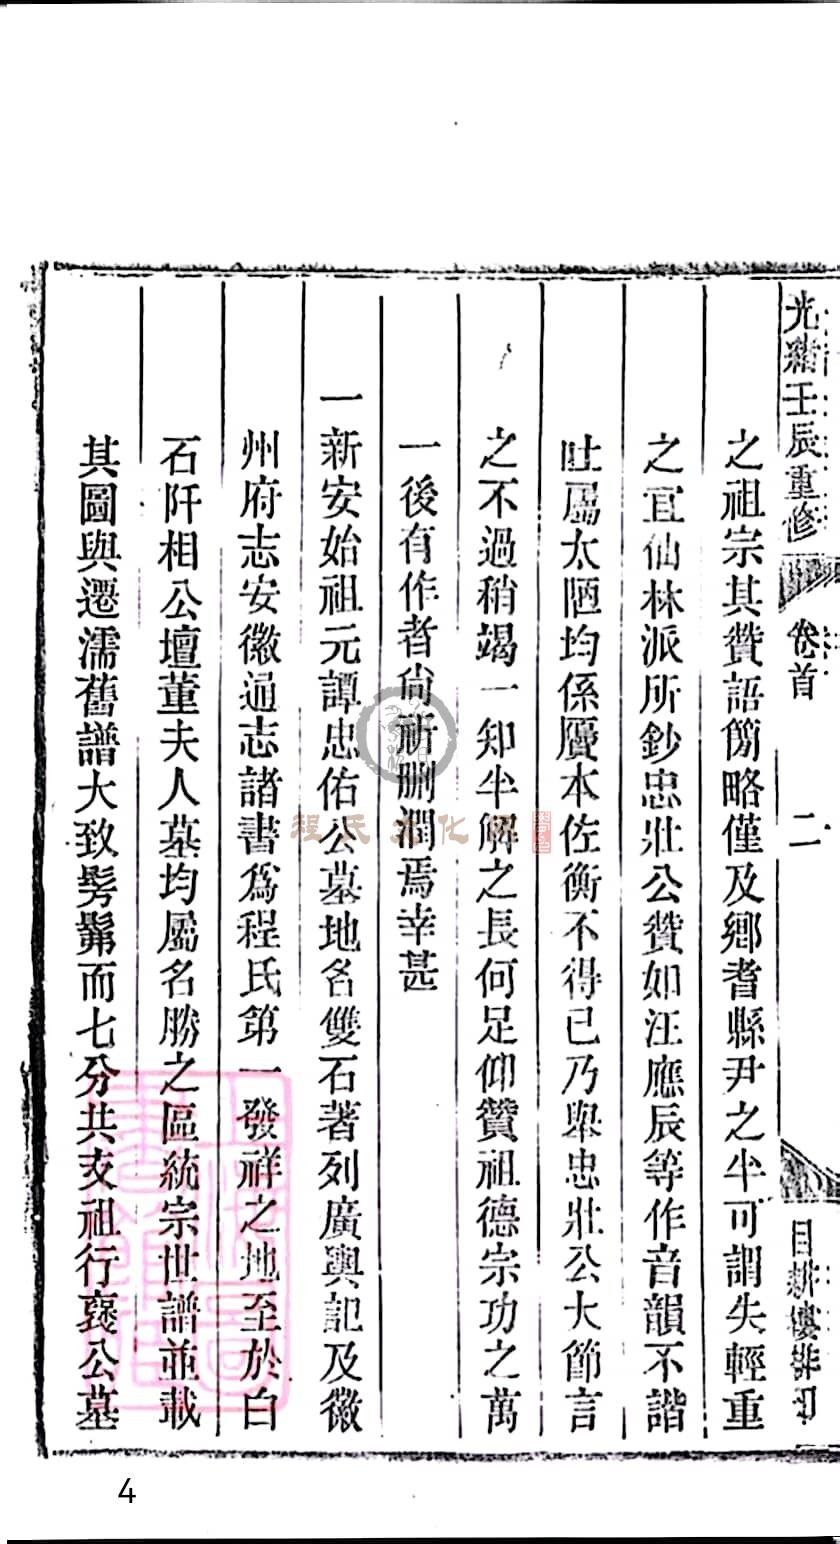 光緒壬辰重修
卷首
二
目耕樓排印
之祖宗其贊語簡略僅及鄉耆縣尹之半可謂失輕重
之宜仙林派所鈔忠壯公贊如汪應辰等作音韻不諧
吐屬太陋均係贗本佐衡不得已乃舉忠壯公大節言
之不過稍竭一知半解之長何足仰贊祖德宗功之萬
一後有作者尚祈刪潤焉幸甚
一新安始祖元譚忠佑公墓地名雙石著列廣輿記及徽
州府志安徽通志諸書爲程氏第一發祥之地至於白
石阡相公壇董夫人墓均屬名勝之區統宗世譜並載
其圖與遷濡舊譜大致髣髴而七分共支祖行褒公墓
程氏文化
4